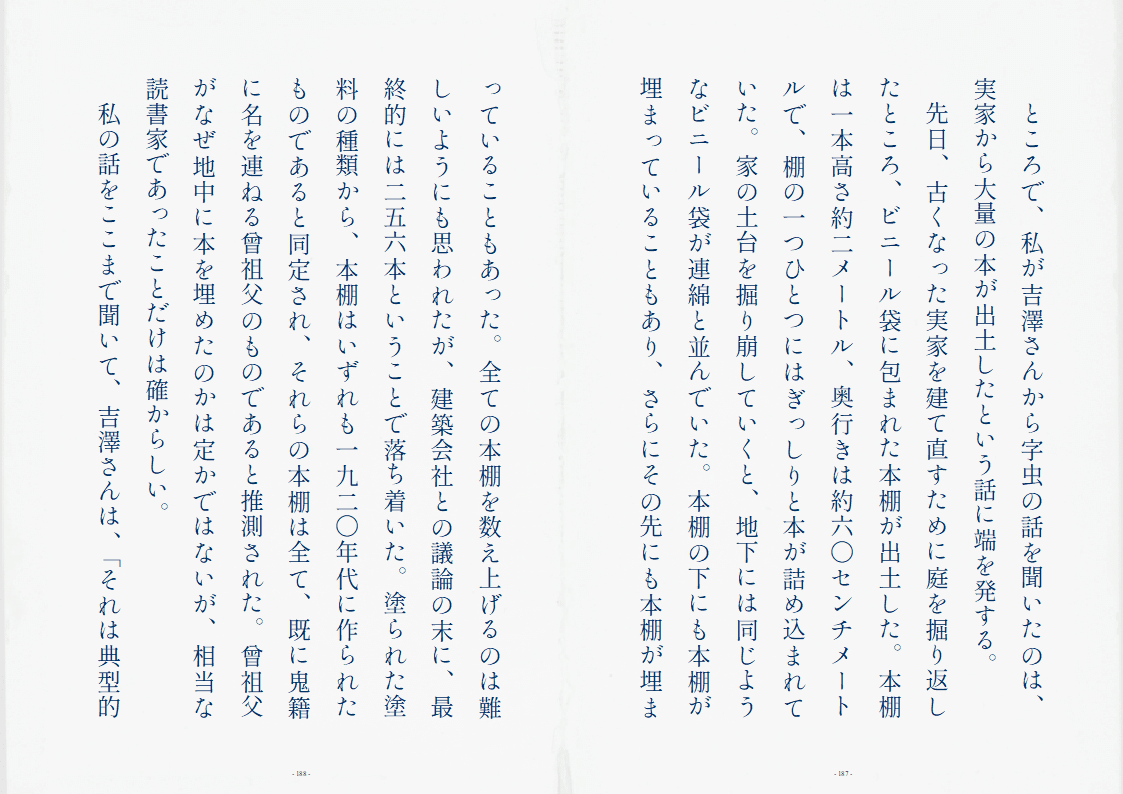 ところで、私が吉澤さんから字虫の話を聞いたのは、
実家から大量の本が出土したという話に端を発する。
先日、古くなった実家を建て直すために庭を掘り返し
たところ、ビニール袋に包まれた本棚が出土した。本棚
は一本高さ約二メートル、奥行きは約六〇センチメート
ルで、棚の一つひとつにはぎっしりと本が詰め込まれて
いた。家の土台を掘り崩していくと、地下には同じよう
なビニール袋が連綿と並んでいた。本棚の下にも本棚が
埋まっていることもあり、さらにその先にも本棚が埋ま
- 187 -
っていることもあった。全ての本棚を数え上げるのは難
しいようにも思われたが、建築会社との議論の末に、最
終的には二五六本ということで落ち着いた。塗られた塗
料の種類から、本棚はいずれも一九二〇年代に作られた
ものであると同定され、それらの本棚は全て、既に鬼籍
に名を連ねる曾祖父のものであると推測された。曾祖父
がなぜ地中に本を埋めたのかは定かではないが、相当な
読書家であったことだけは確からしい。
私の話をここまで聞いて、吉澤さんは、「それは典型的
- 188 -